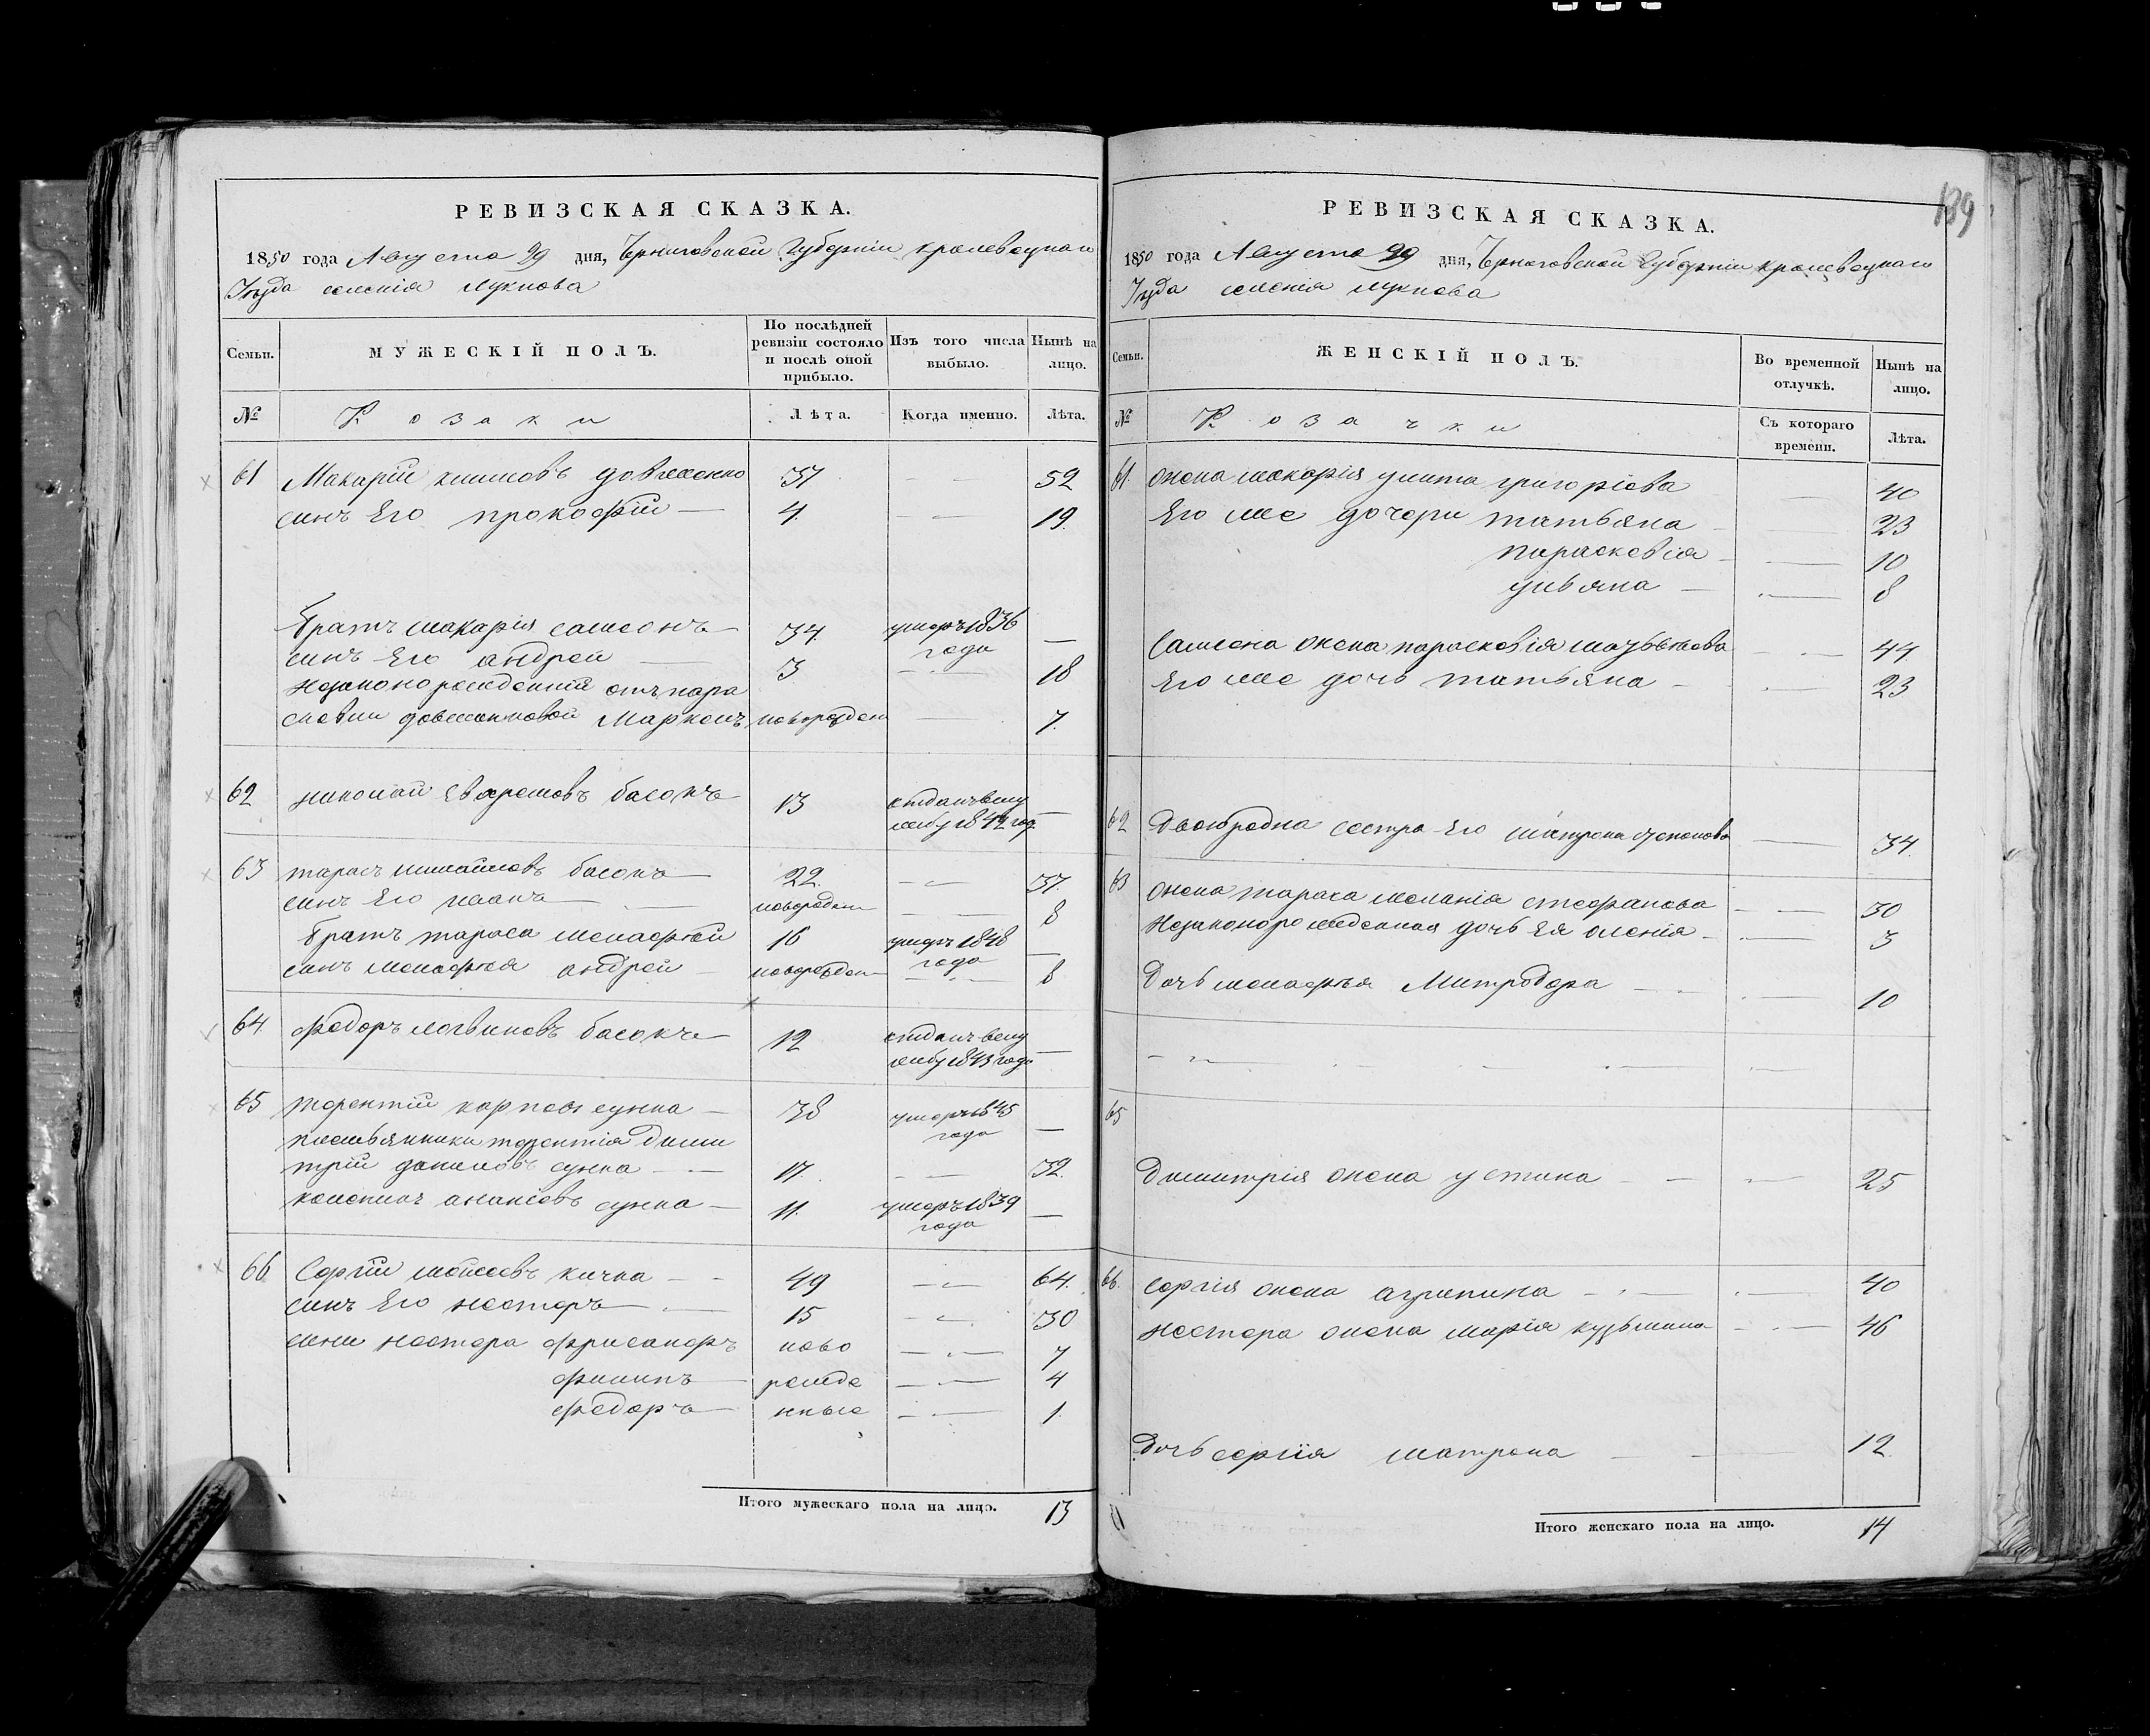 РЕВИЗСКАЯ СКАЗКА.
1850 года Августа 29 дня, Черниговской Губерніи Кролевецкаго
Уѣзда селенія Лукнова
Семьи.
МУЖЕСКІЙ ПОЛЪ.
По послѣдней ревизіи состояло и послѣ оной прибыло.
Изъ того числа выбыло.
Нынѣ на лицо.
№
Козаки
Лѣта.
Когда именно.
Лѣта.
61 Макарій климовъ довженко 37 52
синъ Его прокофій 4. 19.
братъ макарія самсонъ 34 умеръ 1836 года
синъ Его андрей 3 18
Незаконорожденній отъ пара
сковіи довженковой Маркелъ новорожден 7.
62 николай Евфремовъ басокъ 13 отданъ в служ
бу 1842 год.
63 тарасъ михайловъ басокъ 22. 37.
синъ Его новорожден 8
братъ тараса 16 умеръ 1848 года
синъ андрей новорожден 8
64. Федоръ логвиновъ басокъ 12 отданъ в служ
бу 1843 года
65 терентій карповъ 38 умеръ 1845 года
племьянники терентія Дими
трій даниловъ 17. 32.
11. умеръ 1839 года
66. Сергій мойсеевъ кична 49 64.
синъ Его несторъ 15 30
сини нестора ново 7
филипъ рожде 4
федоръ нные 1.
Итого мужескаго пола на лицо. 13
139
РЕВИЗСКАЯ СКАЗКА.
1850 года Августа 29 дня, Черниговской Губерніи Кролевецкаго
Уѣзда селенія Лукнова
Семьи.
ЖЕНСКІЙ ПОЛЪ.
Во временной отлучкѣ.
Нынѣ на лицо.
№
Козачки
Съ котораго времени.
Лѣта.
61. жена макарія улита григоріева 40
Его же дочери татьяна 23
парасковія 10
ульяна 8
Самсона жена парасковія 44
Его же дочь татьяна 23
62 Двоюродна сестра Его матрона 34.
63 жена тараса меланія стефанова 30
Незаконорожденная дочь Ея 3
Дочь Митродора 10
65
Димитрія жена устина 25
66. Сергія жена агрипина 40
Нестора жена марія кузьмина 46
Дочь сергія матрона 12.
Итого женскаго пола на лицо. 14